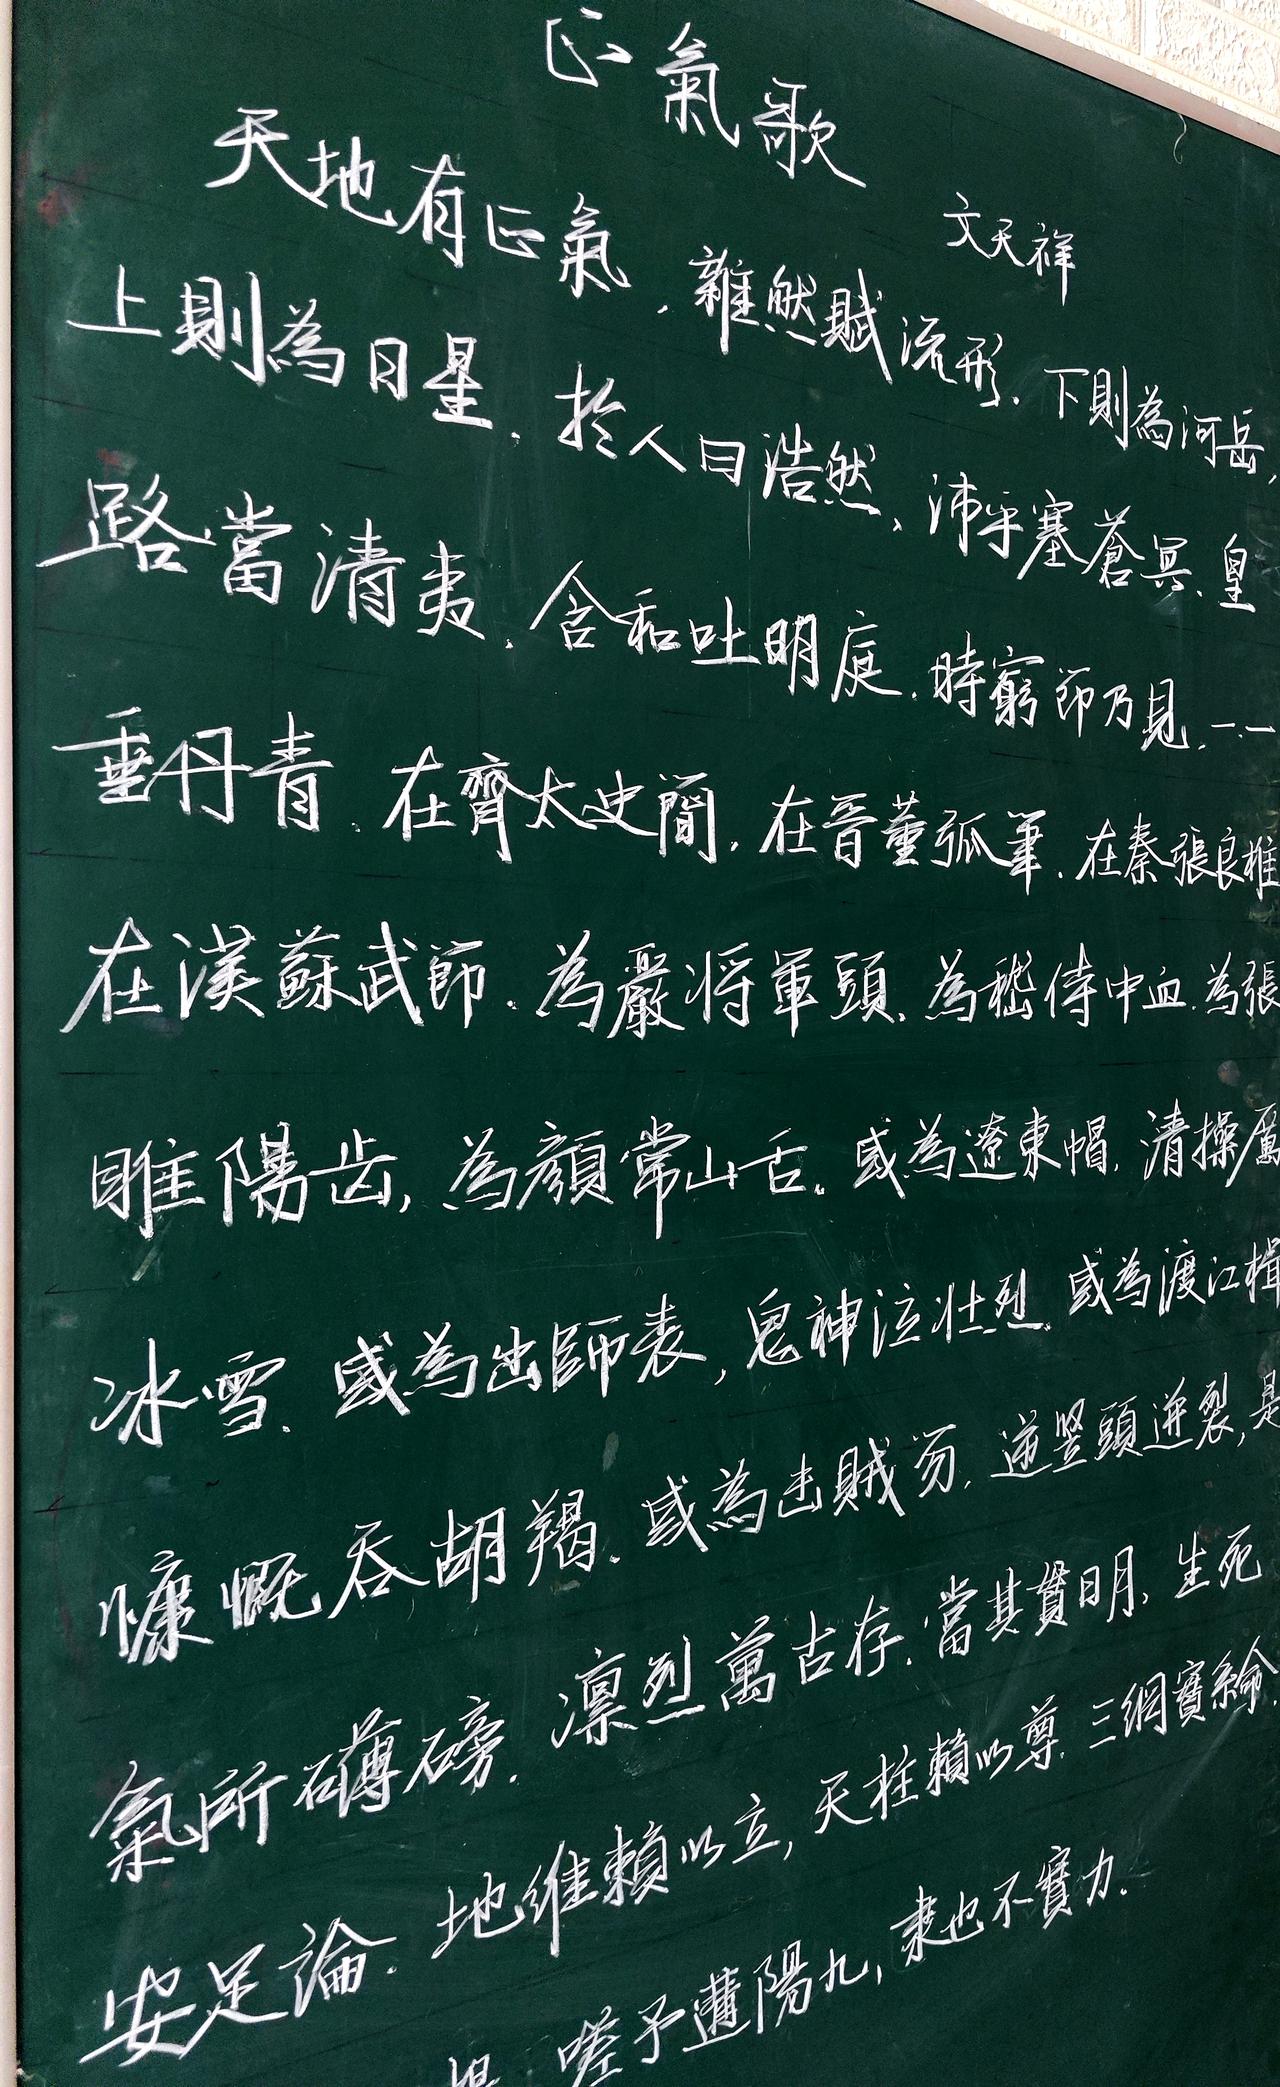 正氣歌
文天祥
天地有正氣，雜然賦流形．下則為河岳，
上則為日星．於人曰浩然、沛乎塞蒼冥、皇
路當清夷．含和吐明庭．時窮節乃見．一一
垂丹青．在齊太史簡．在晉董弧筆．在秦張良椎
在漢蘇武節．為嚴將軍頭、為嵇侍中血．為張
睢陽齿，為顏常山舌．或為遼東帽．清操厲
冰雪．或為出師表，鬼神泣壮烈．或為渡江楫
慷慨吞胡羯．或為击賊笏．逆豎頭迸裂，是
氣所礡磅．凛烈萬古存．當其貫日月、生死
安足論．地維賴以立，天柱賴以尊．三綱實命
嗟予遘陽九，隶也不實力．